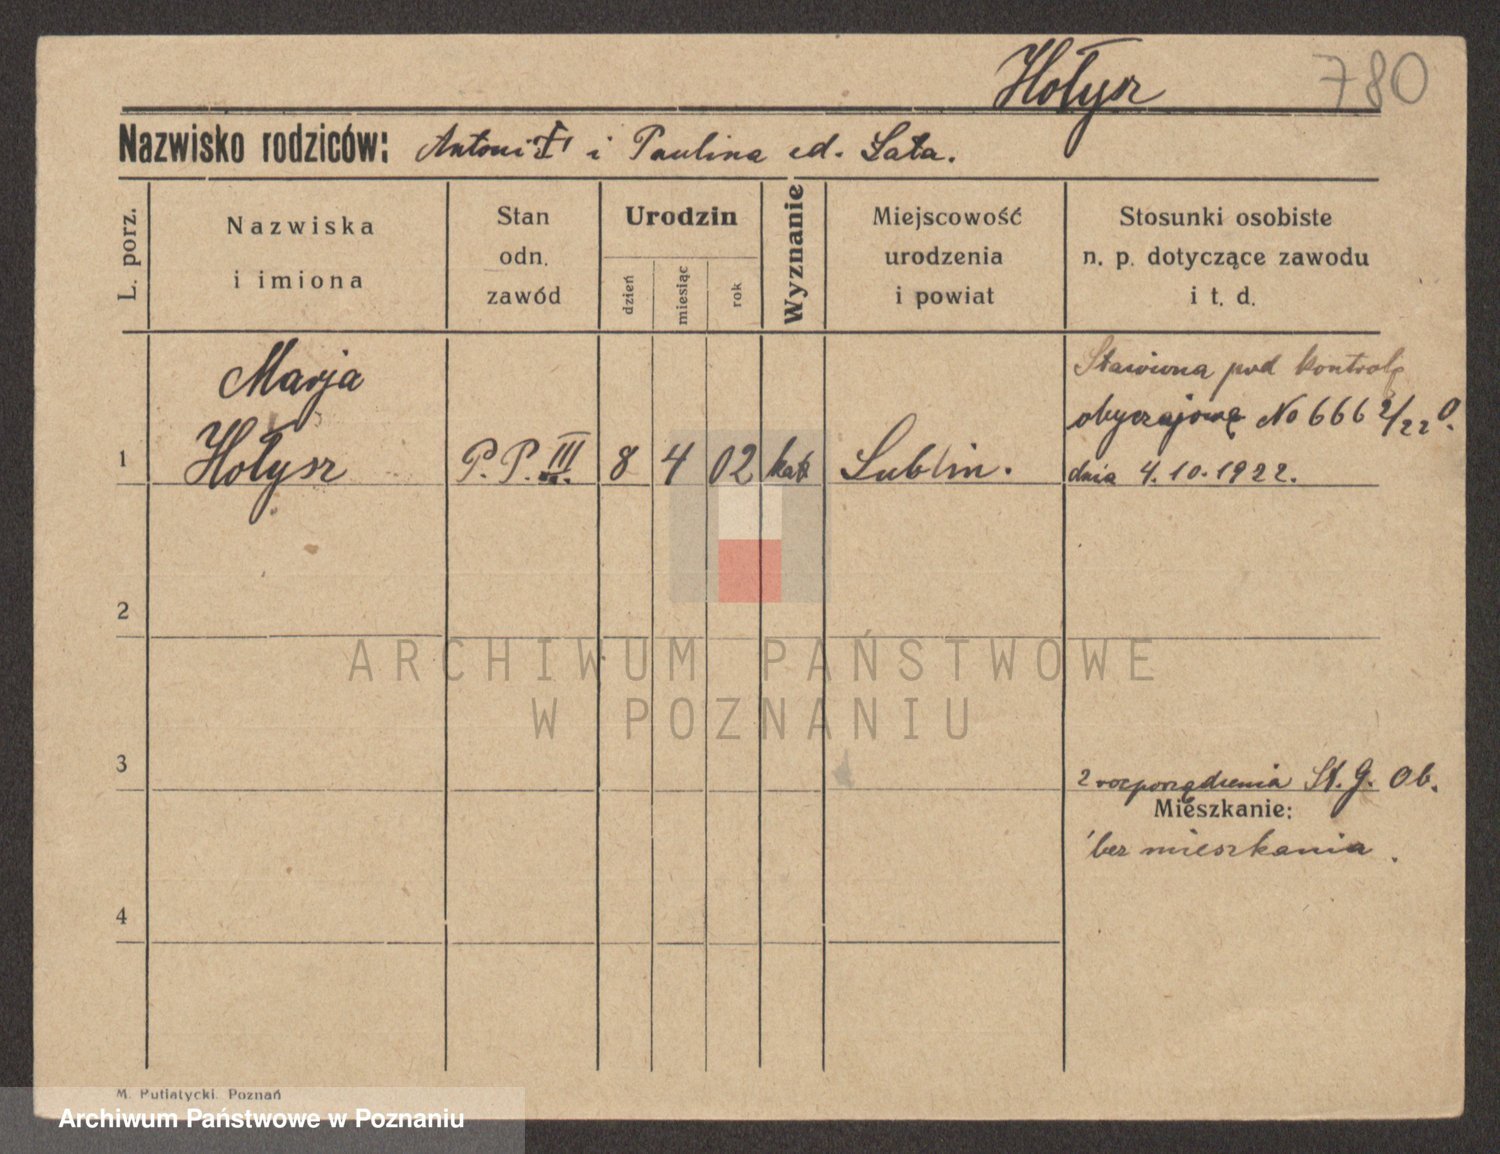 Hołysz 780
Nazwisko rodziców: Antoni † i Paulina
L. porz.
Nazwiska
i imiona
Stan
odn.
zawód
Urodzin
dzień
miesiąc
rok
Wyznanie
Miejscowość
urodzenia
i powiat
Stosunki osobiste
n. p. dotyczące zawodu
i t. d.
Marja
Hołysz
1
P. P. III.
8
4
02
kat
Lublin.
Stawiona pod kontrolę
obyczajową No 666
dnia 4.10.1922.
2
3
z rozporządzenia St. G. Ob.
Mieszkanie:
bez mieszkania.
4
ARCHIWUM PAŃSTWOWE
W POZNANIU
M. Putiatycki. Poznań
Archiwum Państwowe w Poznaniu